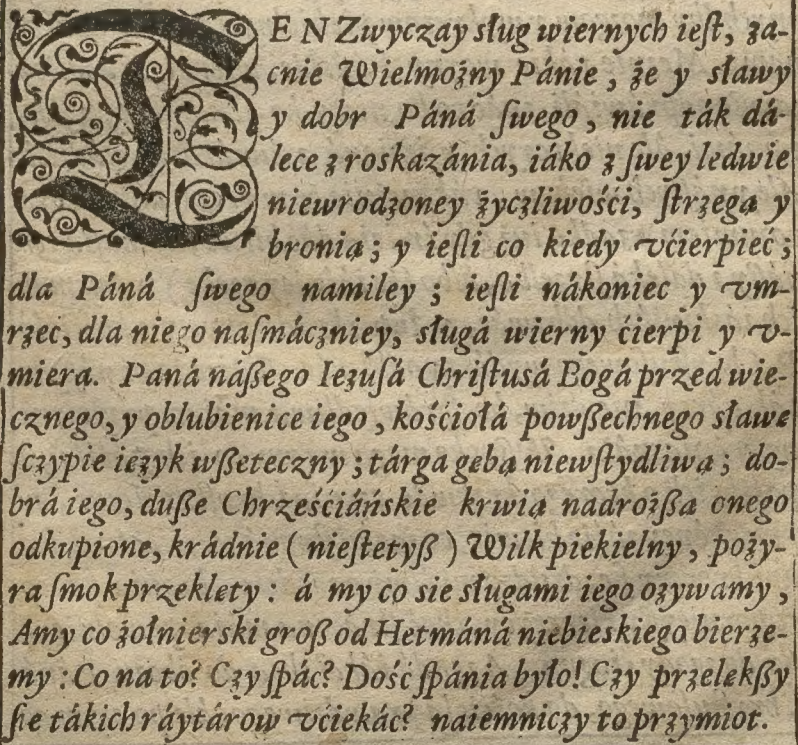 TEN Zwyczay sług wiernych ieſt, za-
cnie Wielmożny Pánie, że y sławy
y dobr Páná ſwego, nie ták dá-
lece z roskazánia, iáko z ſwey ledwie
niewrodzoney życzliwośći, ſtrzegą y
bronią; y ieſli co kiedy vćierpieć;
dla Páná ſwego namiley; ieſli nákoniec y vm-
rzeć, dla niego naſmáczniey, sługá wierny ćierpi y v-
miera. Paná náßego Iezuſá Chriſtusá Bogá przed wie-
cznego, y oblubienice iego, kośćiołá powßechnego sławę
ſczypie ięzyk wßeteczny; tárga gębą niewſtydliwą; do-
brá iego, duße Chrześćiáńskie krwią nadrożßą onego
odkupione, krádnie (nieſtetyß) Wilk piekielny, poży-
ra ſmok przeklęty: á my co sie sługami iego ozywamy,
Amy co żołnierski groß od Hetmáná niebieskiego bierze-
my: Co na to? Czy ſpáć? Dość ſpánia było! Czy przelękßy
ſie tákich ráytárow vćiekáć? naiemniczy to przymiot.